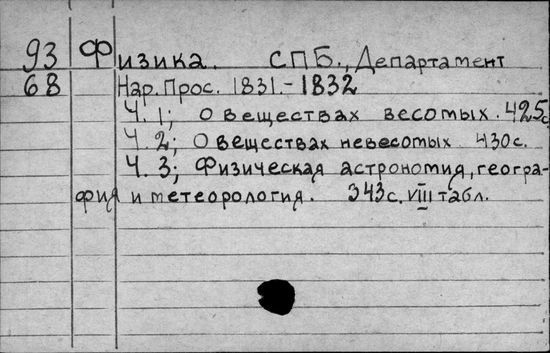 93 Физика. СПБ., Департамент
68 Нар. Прос. 1831.-1832
Ч. 1; О веществах весотых. 425с
Ч. 2; О веществах невесотых 430с.
Ч. 3; Физическая астрономия, геогра-
фия и метеорология. 343с. VIII табл.